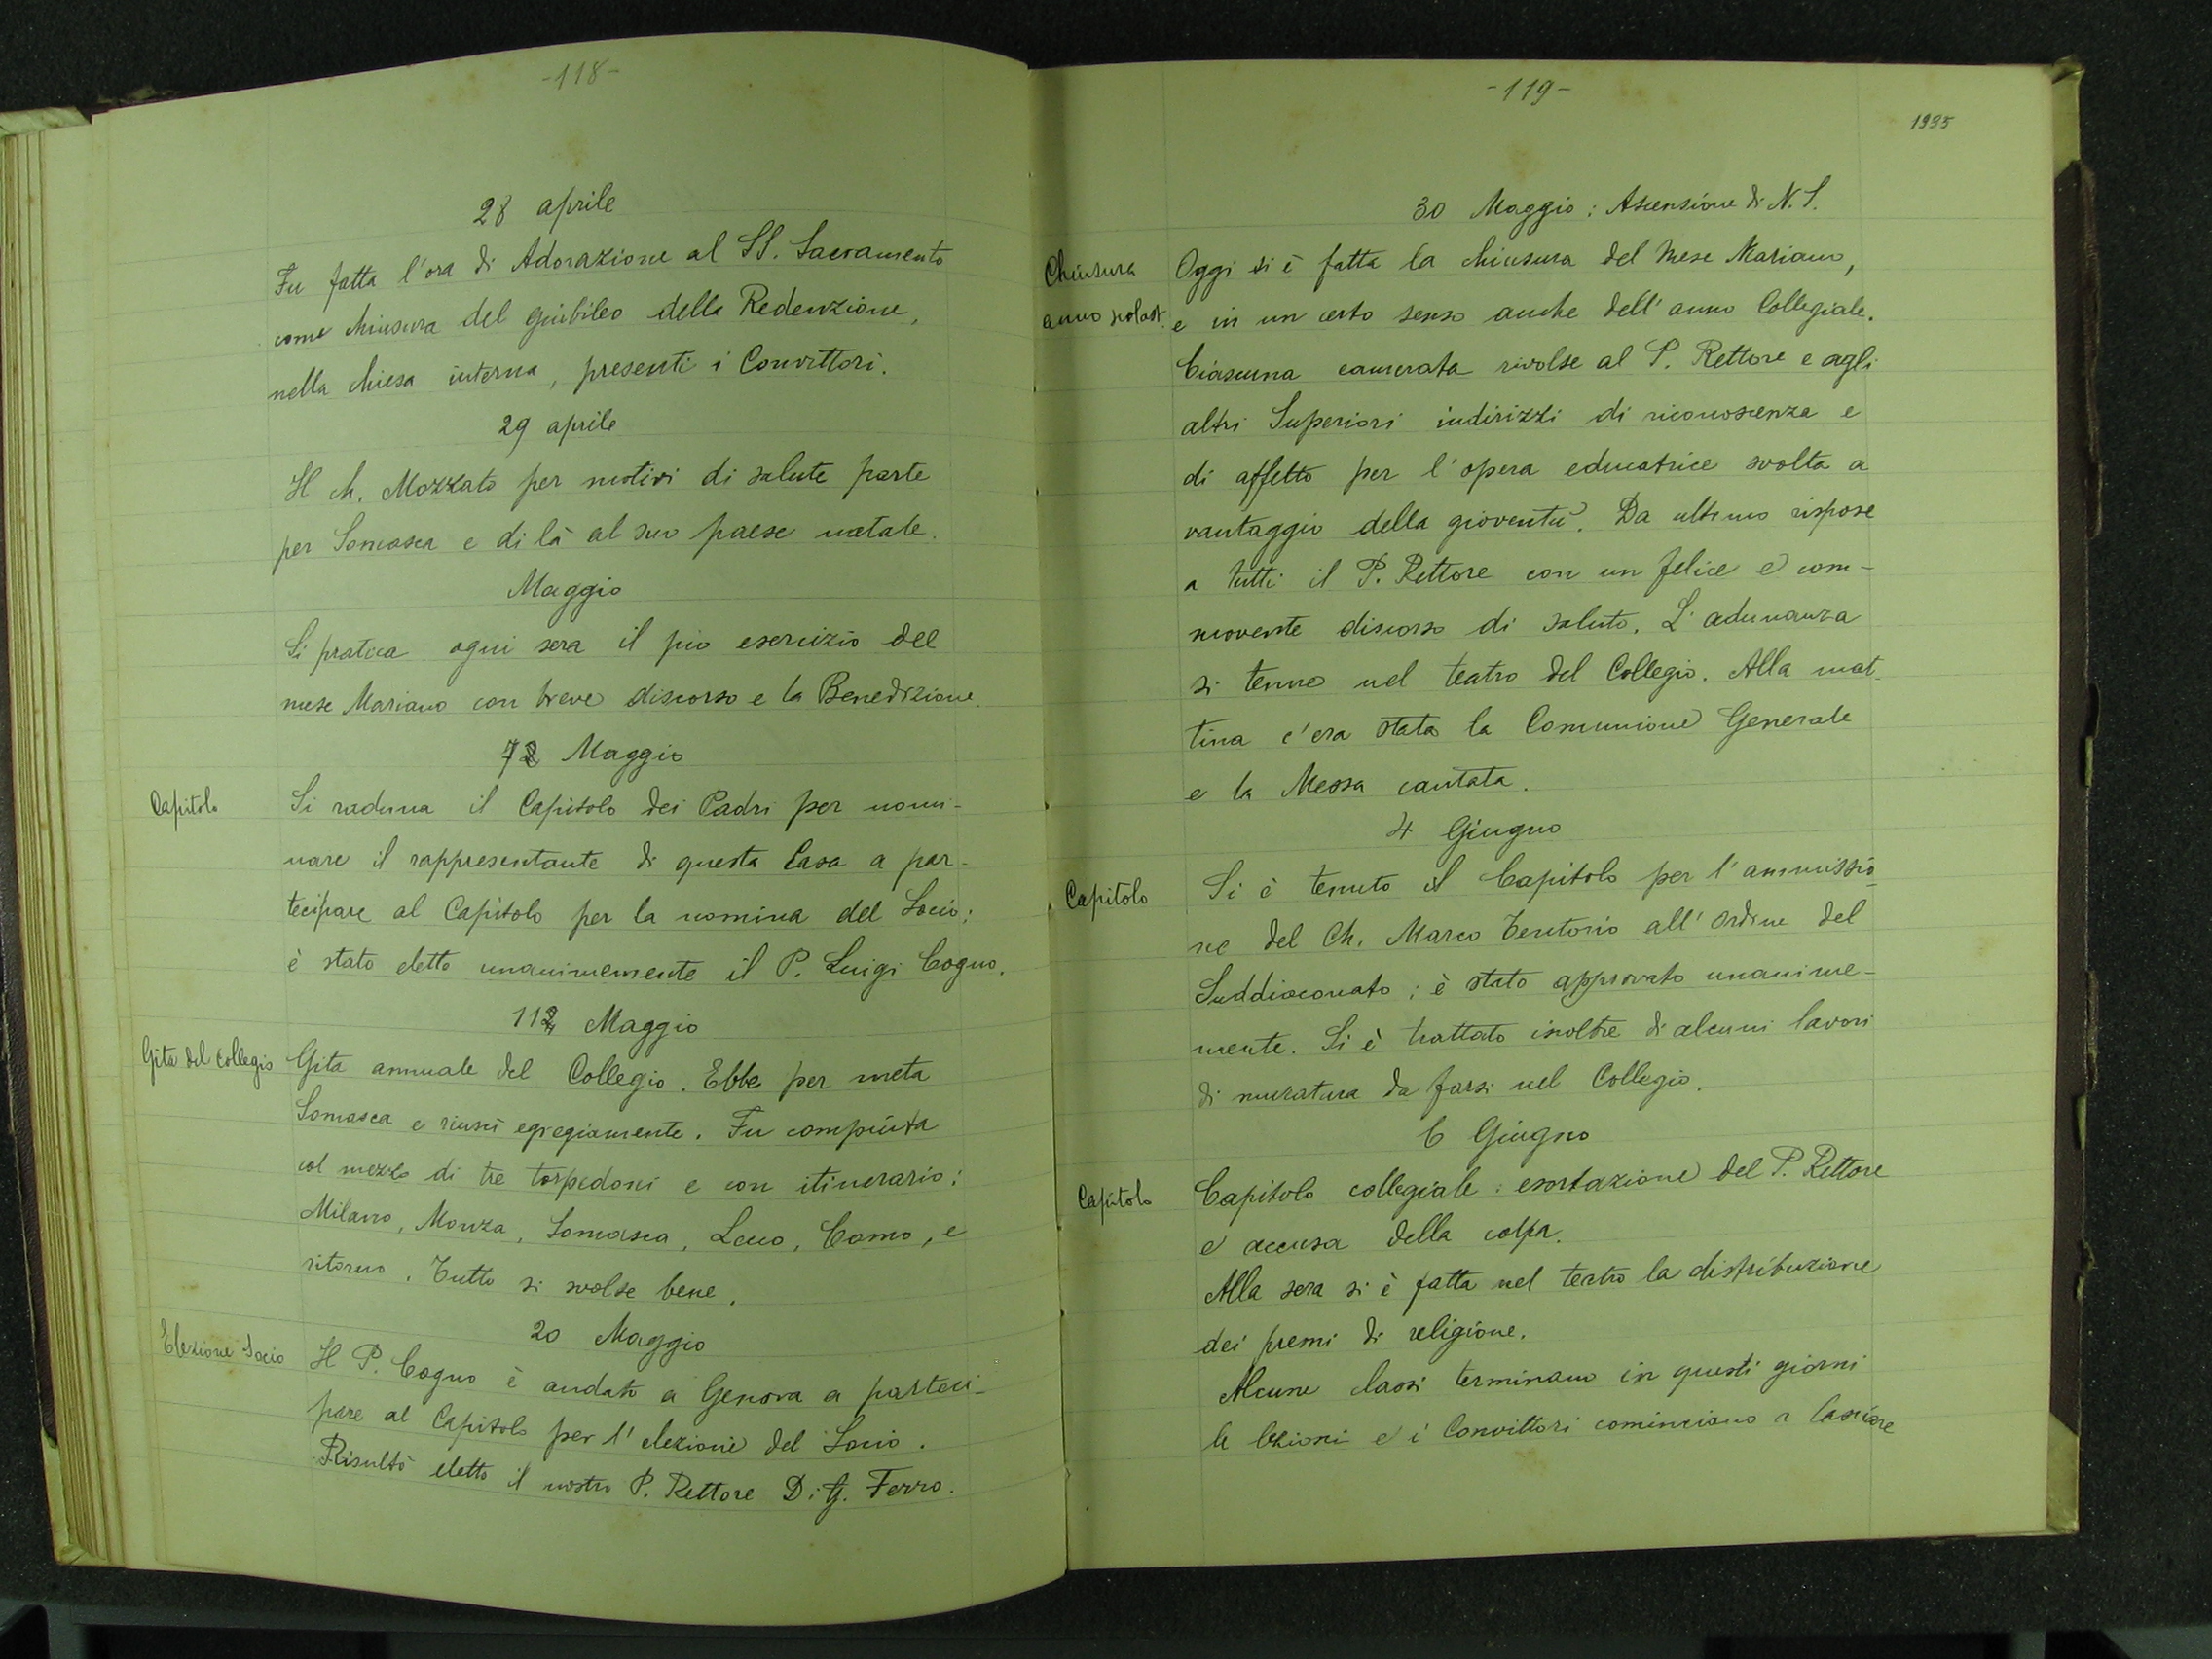 -118-
28 aprile
Fu fatta l'ora di Adorazione al SS. Sacramento
come chiusura del giubileo della Redenzione,
nella chiesa interna, presenti i Convittori.
29 aprile
Il ch. Mozzato per motivi di salute parte
per Somasca e di là al suo paese natale.
Maggio
Si pratica ogni sera il pio esercizio del
mese Mariano con breve discorso e la Benedizione.
Maggio
Capitolo
Si raduna il Capitolo dei Padri per nomi-
nare il rappresentante di questa Casa a par-
tecipare al Capitolo per la nomina del Socio:
è stato eletto unanimemente il P. Luigi Cogno.
Maggio
Gita del Collegio
Gita annuale del Collegio. Ebbe per meta
Somasca e riuscì egregiamente. Fu compiuta
col mezzo di tre torpedoni e con itinerario:
Milano, Monza, Somasca, Lecco, Como, e
ritorno. Tutto si svolse bene.
20 Maggio
Elezione Socio
Il P. Cogno è andato a Genova a parteci-
pare al Capitolo per l'elezione del Socio.
Risultò eletto il nostro P. Rettore D. G. Ferro.
-119-
1935
30 Maggio: Ascensione di N. S.
Chiusura
anno scolast.
Oggi si è fatta la chiusura del mese Mariano,
e in un certo senso anche dell'anno Collegiale.
Ciascuna camerata rivolse al P. Rettore e agli
altri Superiori indirizzi di riconoscenza e
di affetto per l'opera educatrice svolta a
vantaggio della gioventù. Da ultimo rispose
a tutti il P. Rettore con un felice e com-
movente discorso di saluto. L'adunanza
si tenne nel teatro del Collegio. Alla mat-
tina c'era stata la Comunione Generale
e la Messa cantata.
4 Giugno
Capitolo
Si è tenuto il Capitolo per l'ammissio-
ne del Ch. Marco Tentorio all'ordine del
Suddiaconato; è stato approvato unanime-
mente. Si è trattato inoltre di alcuni lavori
di muratura da farsi nel Collegio.
6 Giugno
Capitolo
Capitolo collegiale: esortazione del P. Rettore
e accusa della colpa.
Alla sera si è fatta nel teatro la distribuzione
dei premi di religione.
Alcune classi terminano in questi giorni
le lezioni e i Convittori cominciano a lasciare